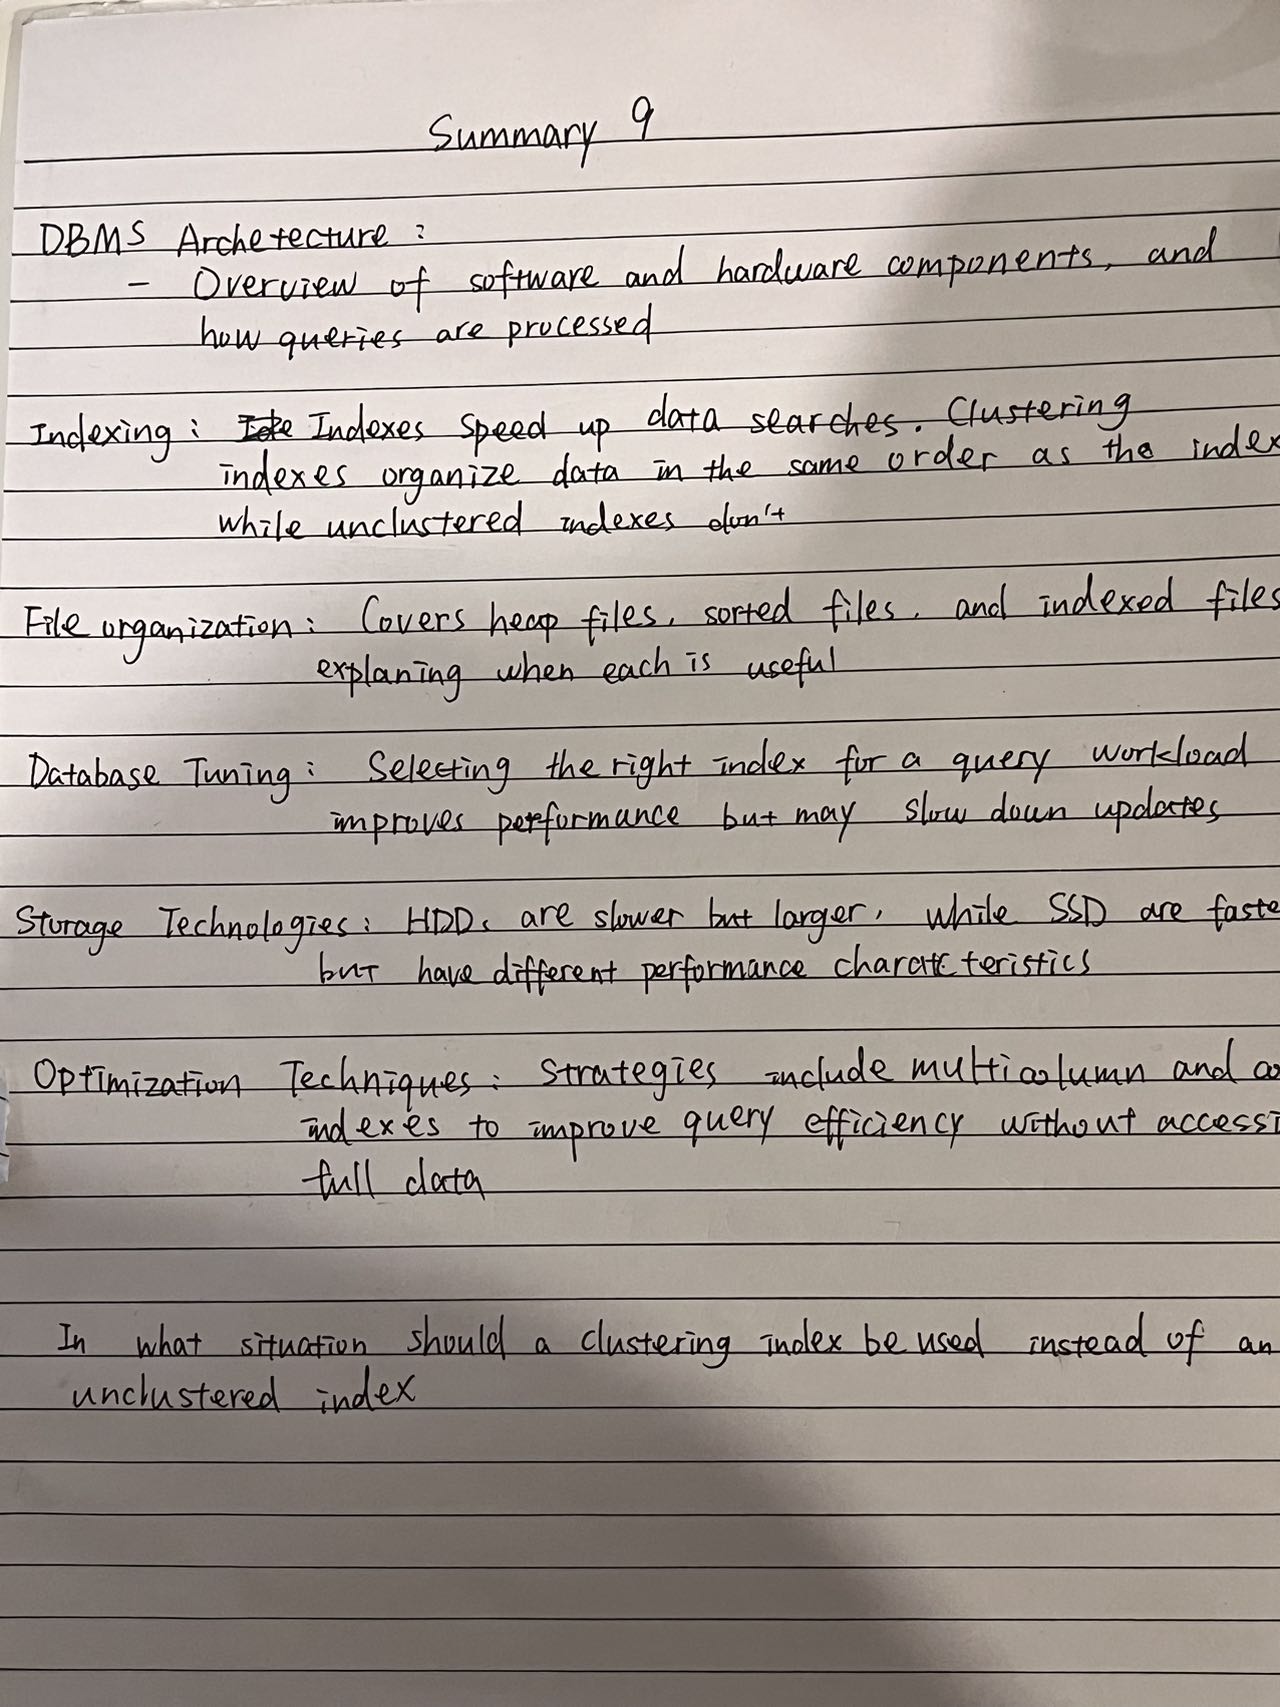 Summary 9
DBMS Archetecture:
- Overview of software and hardware components, and
how queries are processed
Indexing: Indexes speed up data searches. Clustering
indexes organize data in the same order as the index
while unclustered indexes don't
File organization: Covers heap files, sorted files, and indexed files
explaning when each is useful
Database Tuning: Selecting the right index for a query workload
improves performance but may slow down updates
Storage Technologies: HDDs are slower but larger, while SSD are faste
but have different performance charatcteristics
Optimization Techniques: Strategies include multicolumn and co
indexes to improve query efficiency without accessi
full data
In what situation should a clustering index be used instead of an
unclustered index